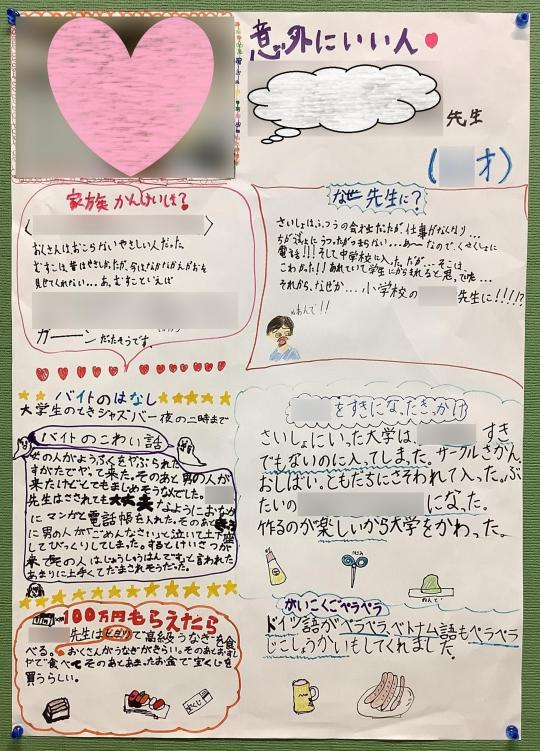 意外にいい人
先生
(才)
家族かんけいは?
おくさんはおこらないやさしい人だった
むすこは、昔はやさしかったが、今はなかなかえがおを
見せてくれない…あ、むすこといえば
ガーーンだたそうです。
なぜ先生に?
さいしょはふつうの会社だったが、仕事がなくなり…
電話!!!そして中学校に入った。だが…そこは、
こわかった!!あれていて学生に
それから、なぜか…小学校の先生に!!!!?
なあんで!!
バイトのはなし
大学生のときジャズバー夜の二時まで
バイトのこわい話
女の人がようふくをやぶられた
すがたでやって来た。そのあと男の人が
来たけどとてもまじめそうな人でした。
先生はさされても大丈夫なようにおなか
にマンガと電話帳を入れた。そのあと
に男の人が「ごめんなさい」と泣いて土下座
してびっくりしてしまった。するとけいさつが
来て「その人はじょうしゅうはんです」と言われた
あまりに上手くてだまされそうだった。
100万円もらえたら
先生はヒヨリで高級うなぎを食
べる。おくさんがうなぎがきらい。そのあとおすし
やで食べてそのあとあまったお金で宝くじを
買うらしい。
宝くじ
をすきになったきっかけ
さいしょにいった大学は、すき
でもないのに入ってしまった。サークルさがん、
おしばい。ともだちにさそわれて入った。ぶ
たいのになった。
作るのが楽しいから大学をかわった。
がいこくごペラペラ
ドイツ語がペラペラ、ベトナム語もペラペラ
じこしょうかいもしてくれました。